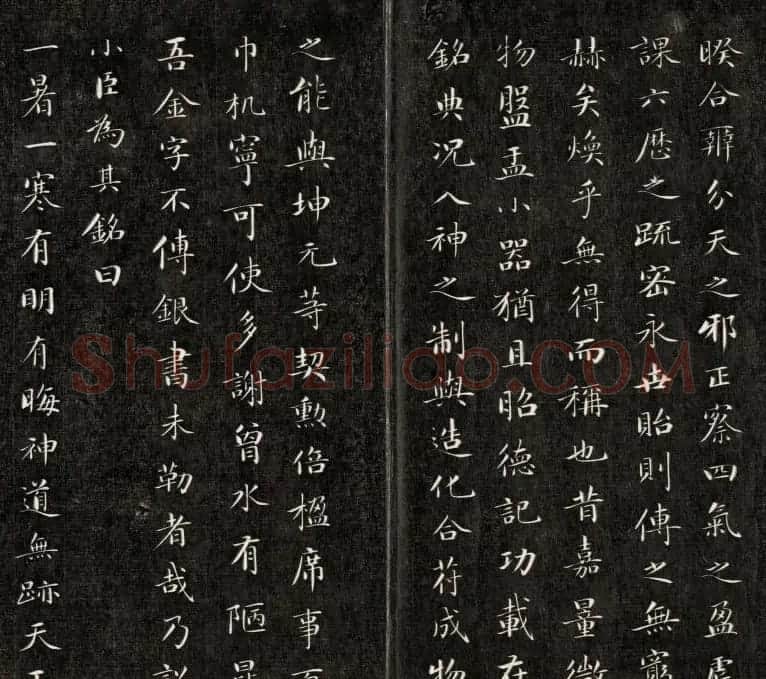 暌合辨分天之邪正察四氣之盈虛
課六歷之疏密永世貽則傳之無窮
赫矣煥乎無得而稱也昔嘉量微
物盤盂小器猶且昭德記功載在
銘典況入神之制與造化合苻成物
之能與坤元等契勳倍楹席事
巾机寧可使多謝曾水有陋昆
吾金字不傳銀書未勒者哉乃詔
小臣為其銘曰
一暑一寒有明有晦神道無跡天
Shufaziliao.COM